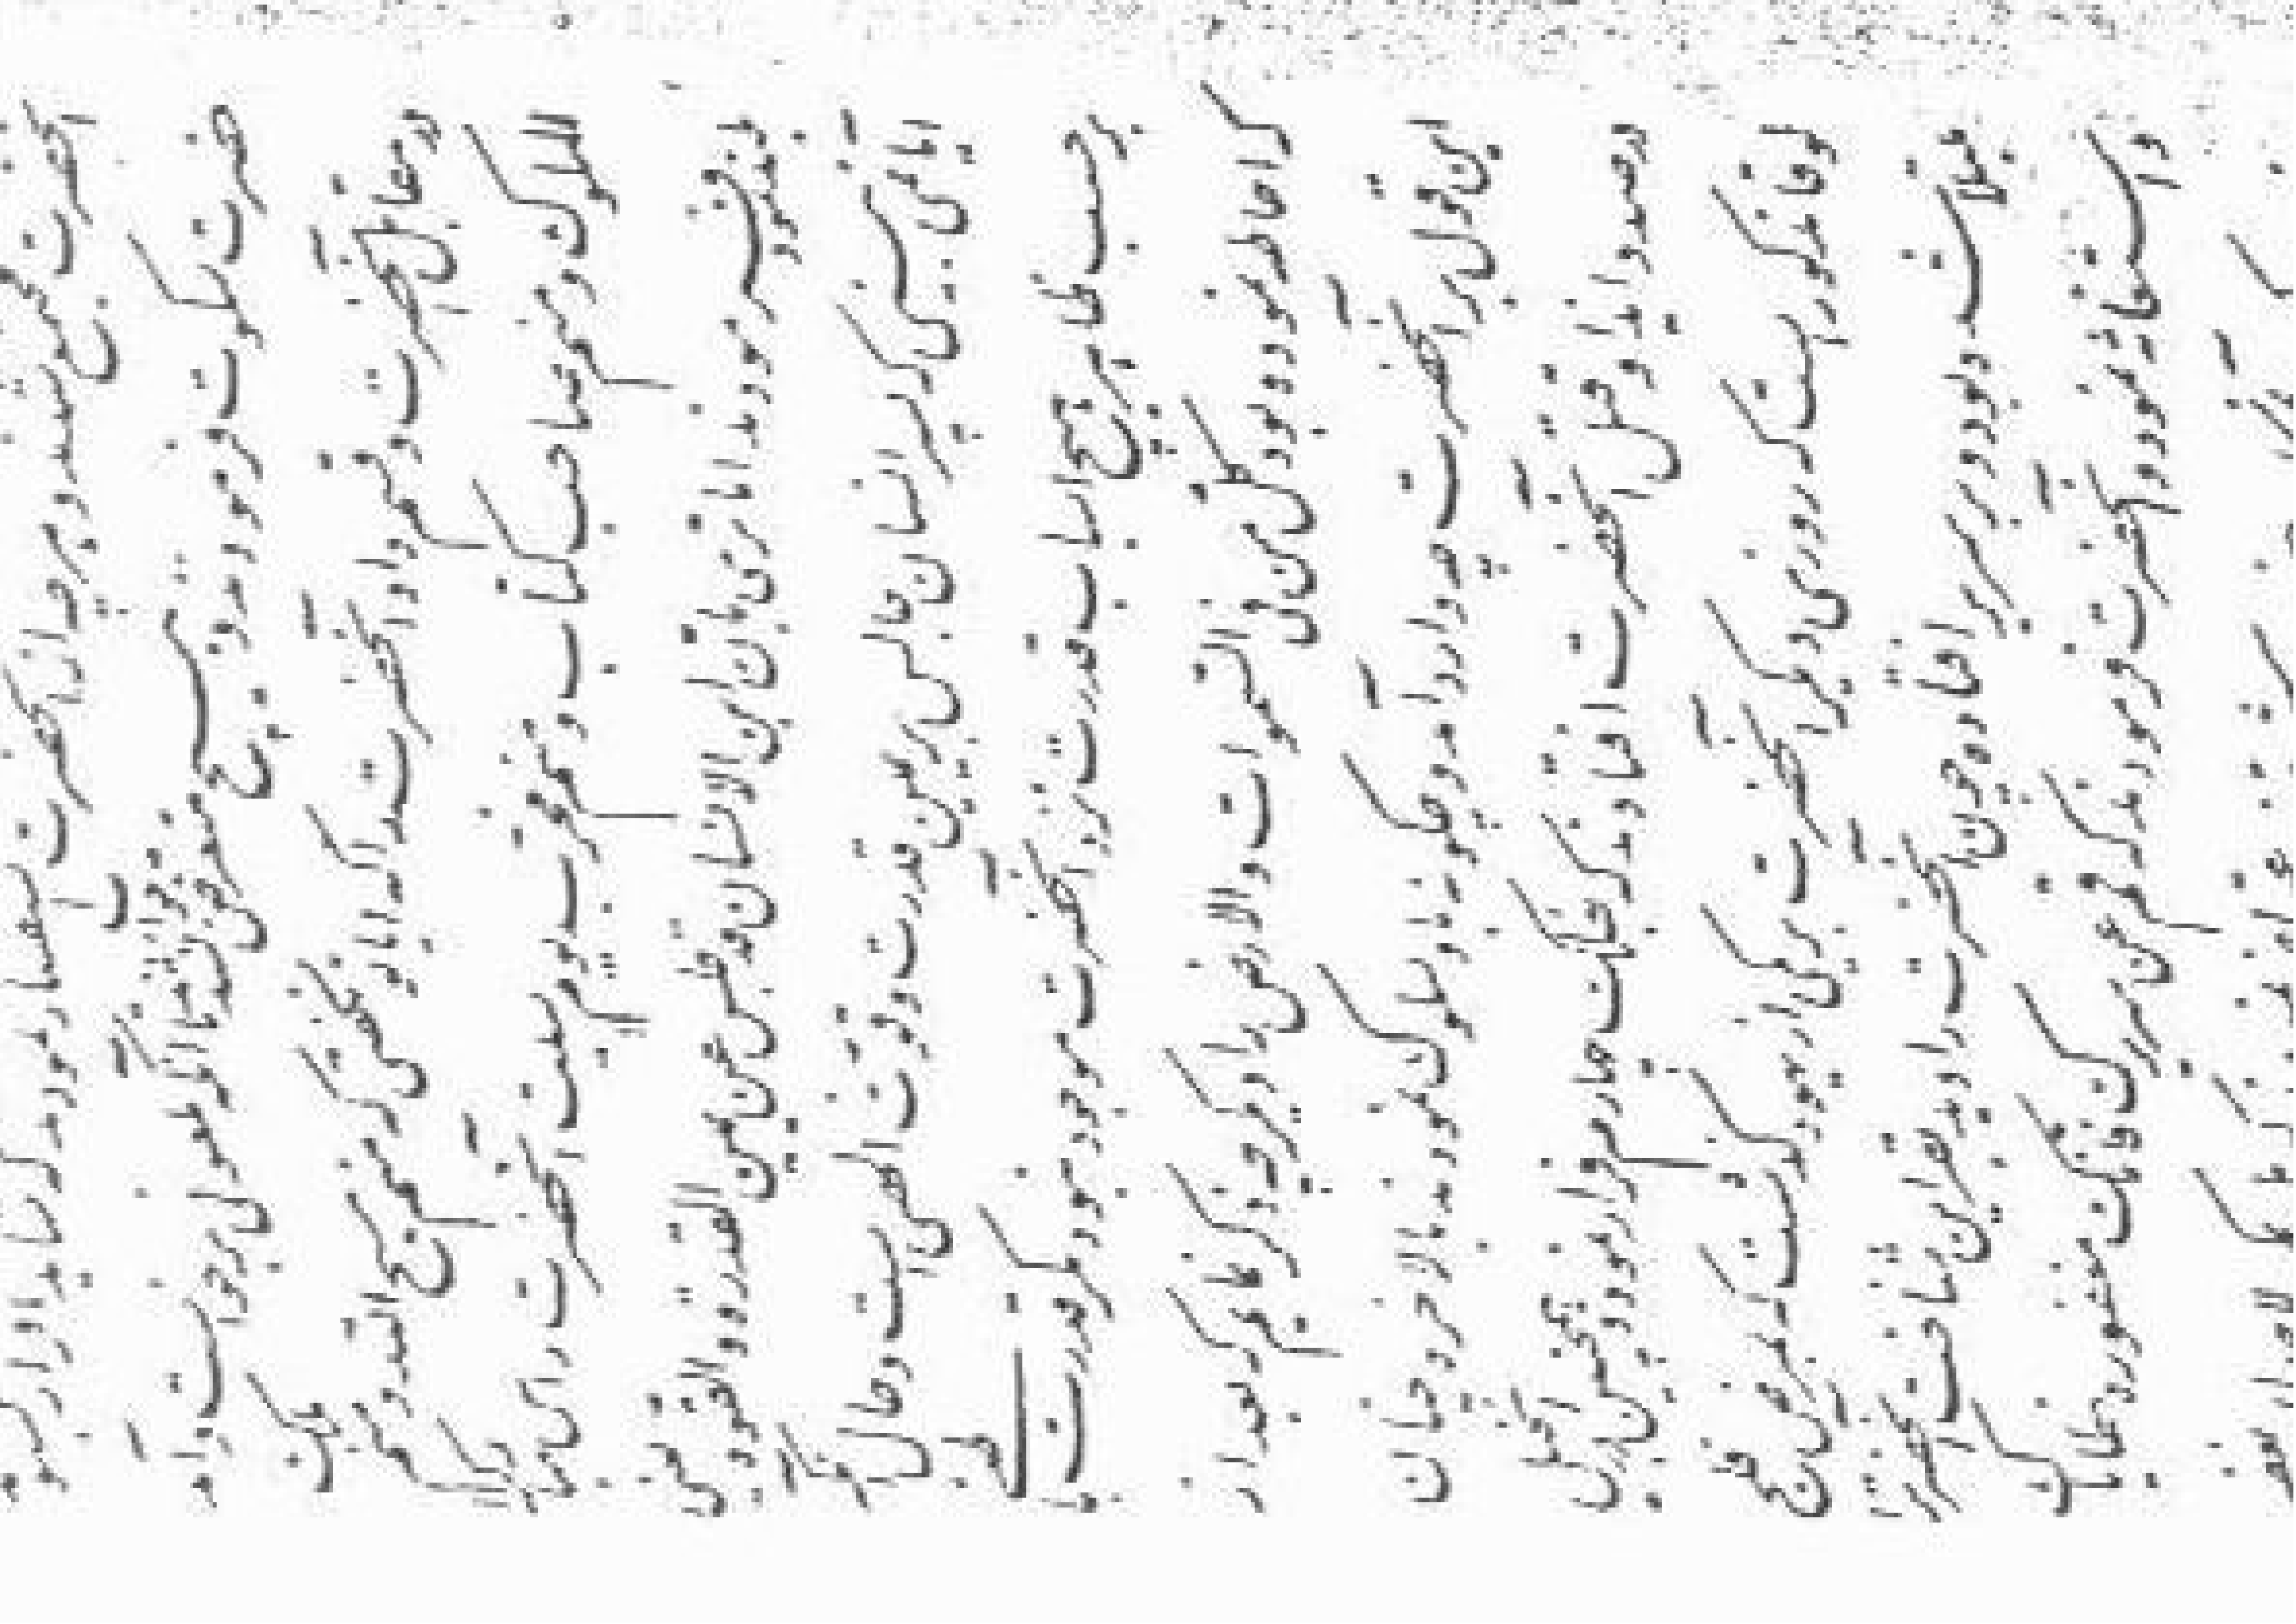 آنحضرت جمع شدند و هر چند از آنحضرت استفسار نمودند که
حضرت سکوت فرمودند و هیچ متعرض نشدند تا آنکه ملعونی برخواست و آمد
در مقابل آنحضرت و قسم داد آنحضرت را که آیا تو نگفتی که منم مسیح الله و منم ملک
الملوک و منم صاحب کتاب و منم مخرب یوم سبت آنحضرت راس مبارک را
بلند نموده فرمودند اما تری بان ابن الانسان قد جلس عن یمین القدرة و القوة یعنی
ایا نمی بینی که پسر انسان جالس بر یمین قدرت و قوت الهی است و حال آنکه
بر حسب ظاهر هیچ اسباب قدرت نزد آنحضرت موجود نبود مگر قدرت باطنیه
که احاطه نموده بود کل من فی السموات والارض را دیگر چه ذکر نمایم که بعد از
این قول بر آنحضرت چه وارد آمد و چگونه باو سلوک نمودند بالاخره چنان
در صدد ایذا و قتل آنحضرت افتادند که بفلک چهارم فرار نمود و همچنین در انجیل
لوقا مذکور است که روزی دیگر آنحضرت بر یکی از یهود گذشت که بمرض فلج
مبتلا شده بود و بر سریر افتاده چون آنحضرت را دید بقراین شناخت آنحضرت را
و استغاثه نمود و آنحضرت فرمودند قم عن سریرک فانک مغفورة خطایاک